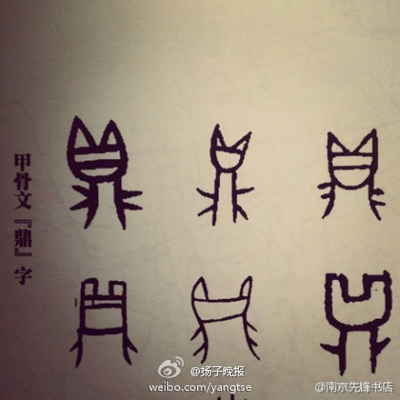 甲骨文『鼎』字
@扬子晚报
weibo.com/yangtse
@南京先锋书店